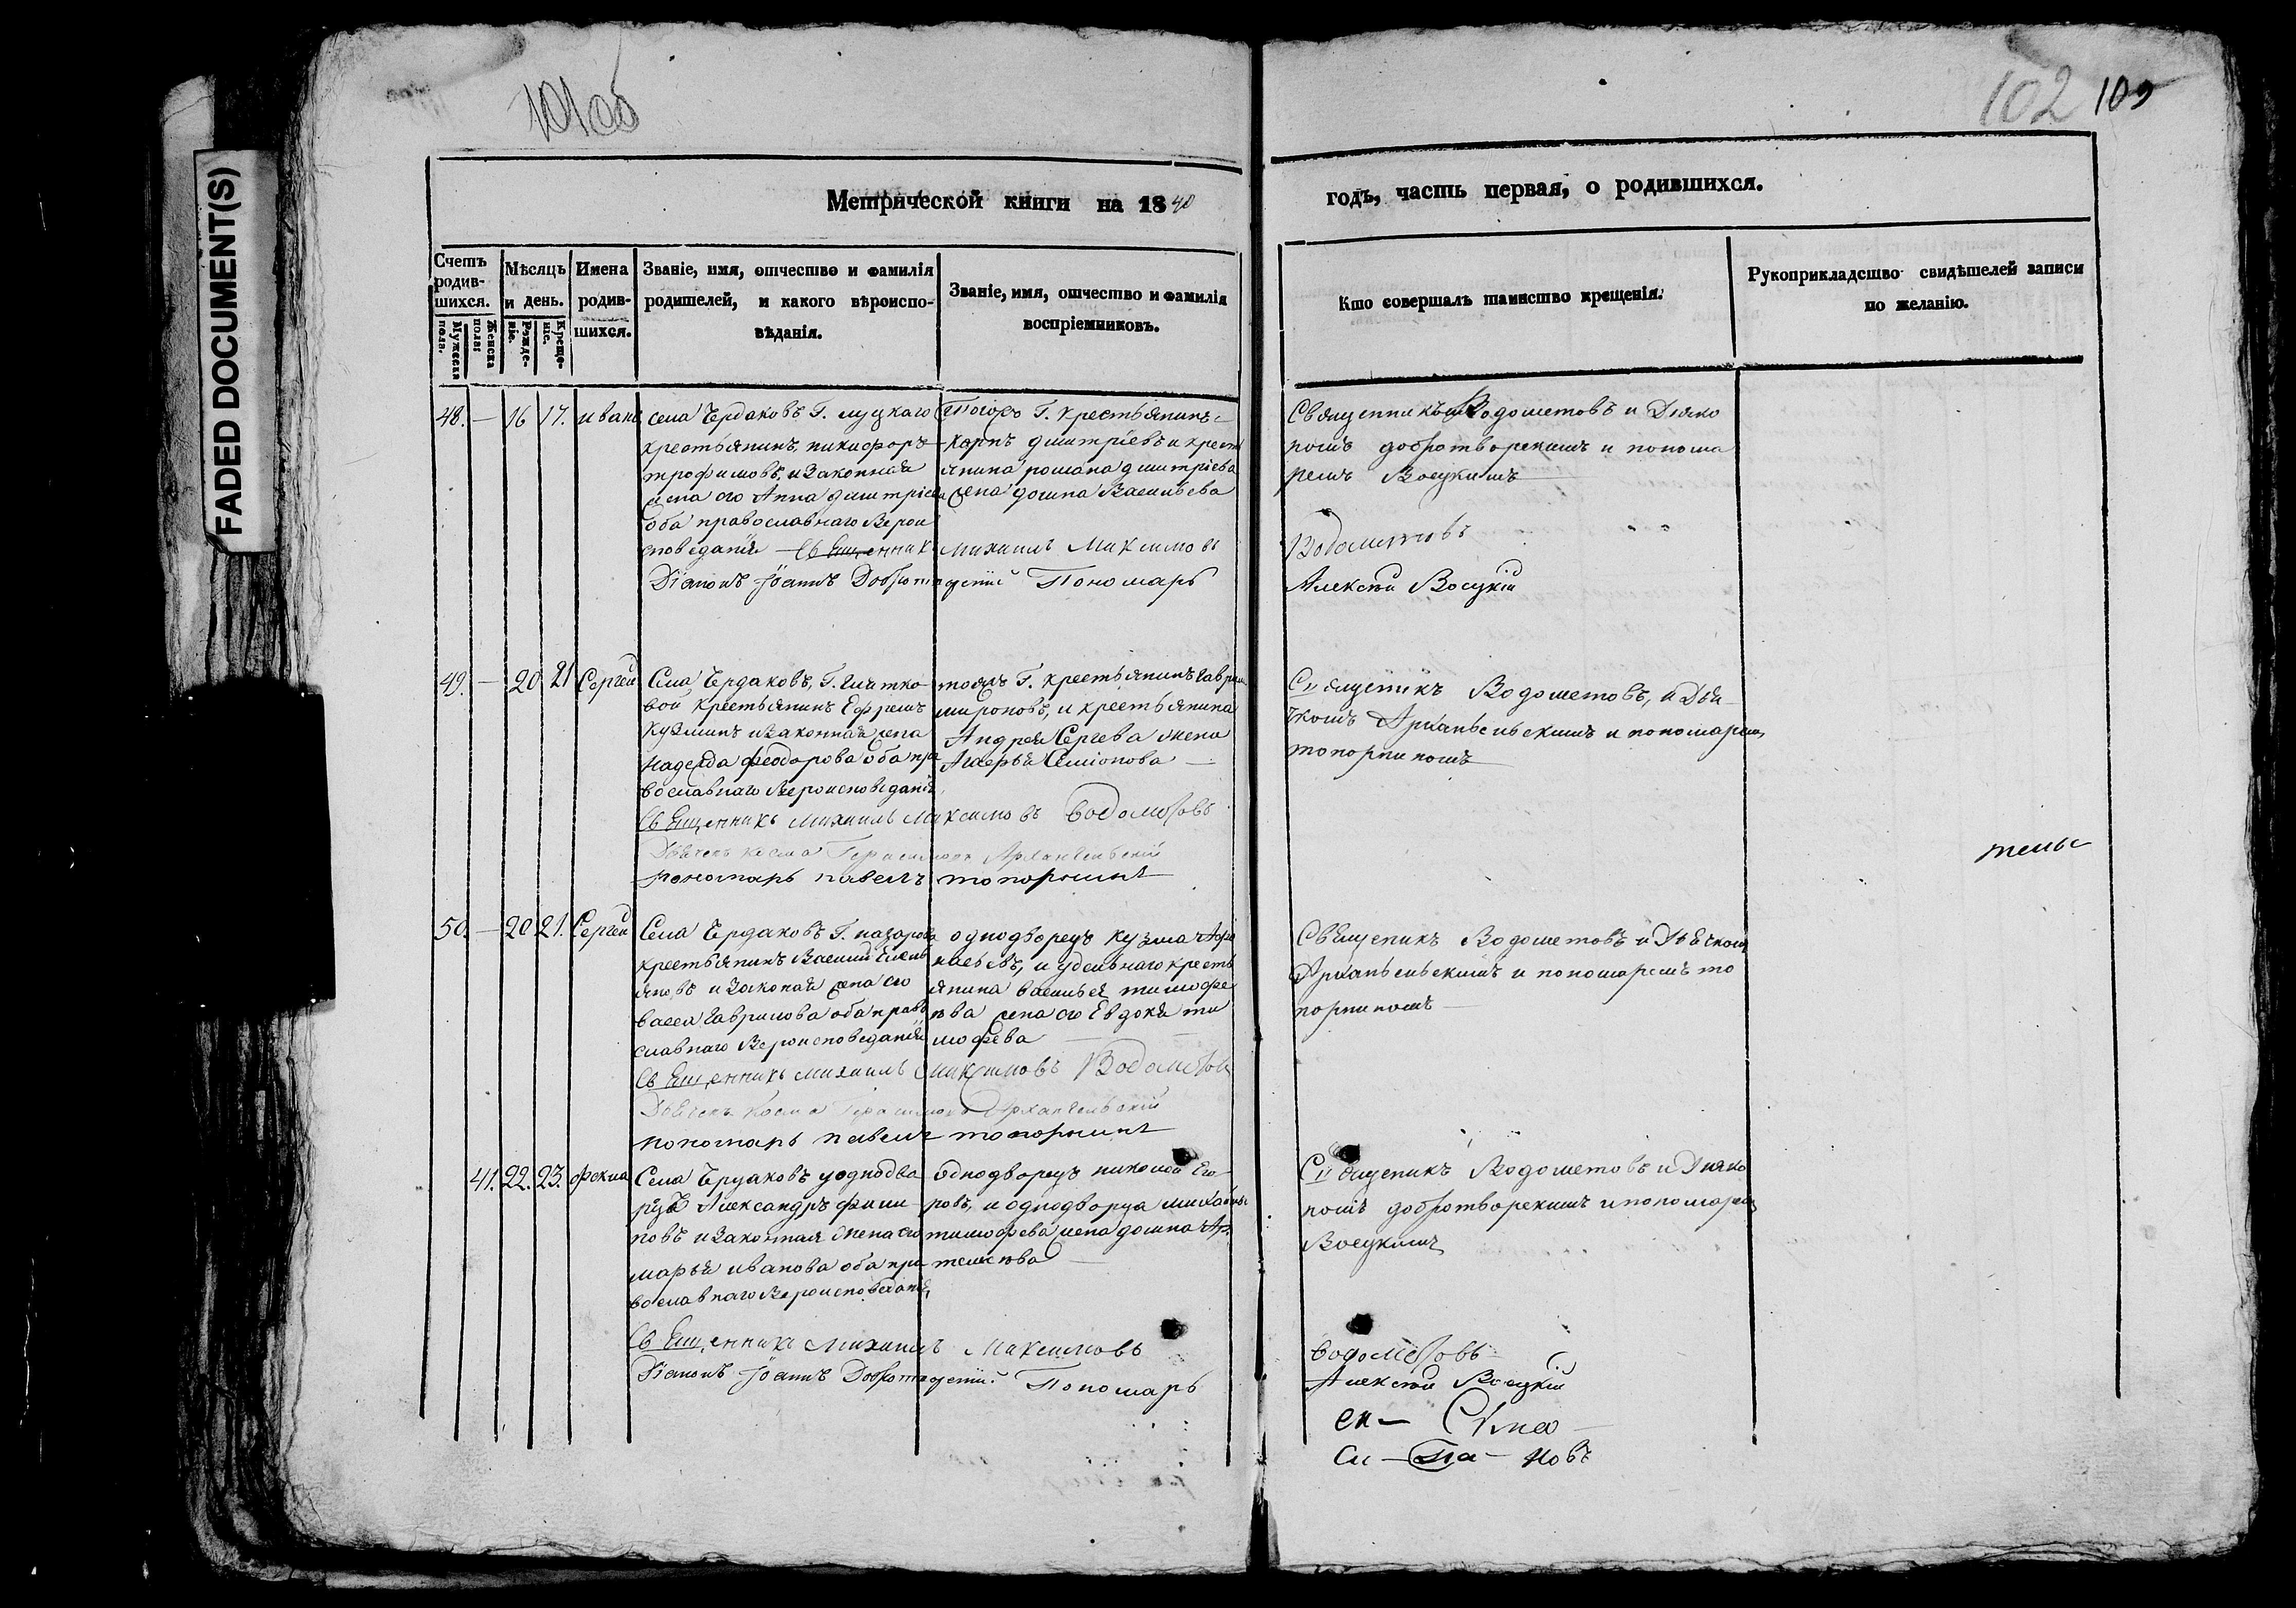 FADED DOCUMENT(S)
101об
102 109
Метрической книги на 1840
годъ, часть первая, о родившихся.
Счетъ родив-шихся.
Мужеска полъ.
Женска полъ.
Мѣсяцъ и день.
Рожде-ніе.
Креще-ніе.
Имена родив-шихся.
Званіе, имя, отчество и фамилія
родителей, и какого вѣроиспо-
вѣданія.
Званіе, имя, отчество и фамилія
воспріемниковъ.
Кто совершалъ таинство крещенія.
Рукоприкладство свидѣтелей записи
по желанію.
48. — 16 17. иванъ
села Ердаковъ Г. луцкаго
крестьянинъ, никифоръ
трофимовъ, и Законная
жена его Анна дмитріева
оба православнаго Верои
споведания — Священник
Діаконъ Іоаннъ Добротворскій Пономарь
Тогожъ Г. крестьянинъ
карпъ дмитріевъ и кресть
янина романа дмитріева
жена домна Васильева
михаилъ Максимовъ
Священникъ Водометовъ и Дияко
номъ добротворскимъ и понома
ремъ Восукимъ
Водометовъ
Алексѣй Восукій
49. — 20 21 Сергей
Села Ердаковъ, Г.
вой крестьянинъ Ефремъ
Кузминъ и Законная жена
Надежда феодорова оба пра
вославнаго Вероисповедания
Священникъ михаилъ Максимовъ Водометовъ
Дьячекъ косма Герасимовъ Архангельскій
пономарь павелъ топорнинъ
тояжъ Г. крестьянинъ Гаврила
мироновъ, и крестьянина
Андрея Сергева жена
Семіонова —
Священикъ Водометовъ, и Дья
чкомъ Арханьельскимъ и пономаремъ
топорниномъ
тель
50. — 20 21. Сергей
Села Ердаковъ Г. назарова
крестьянинъ Василий Емель
яновъ и Законая жена его
васса Гаврилова оба право
славнаго Вероисповедания
Священникъ михаилъ Максимовъ Водометовъ
Дьячекъ Косма Герасимовъ Архангельскій
пономарь павелъ топорнинъ
однодворецъ кузма Афо
насьевъ, и удельнаго кресть
янина василья тимофе
ева жена его Евдокия ти
мофева
Священикъ Водометовъ и Дьячкомъ
Арханьельскимъ и пономаремъ то
порниномъ —
41. 22. 23. фекла
Села Ердаковъ однодво
рецъ Александръ фили
повъ и Законная жена его
марья иванова оба пра
вославнаго Вероисповедания,
Священникъ Михаилъ Максимовъ
Діаконъ Іоаннъ Добротворскій Пономарь
Однодворецъ николай Его
ровъ, и однодворца михайлы
тимофева жена домна Ар
темьева
Священикъ Водометовъ и Дияко
номъ добротворскимъ и пономаремъ
Восукимъ
Водометовъ
Алексѣй Восукій
ен —
си — Па — новъ